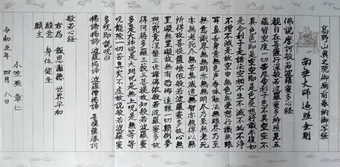 南無大師遍照金剛
佛説摩訶般若波羅蜜多心経
観自在菩薩行深般若波羅蜜多時照見五
蘊皆空度一切苦厄舎利子色不異空空不
異色色即是空空即是色受想行識亦復如
是舎利子是諸法空相不生不滅不垢不浄
不増不減是故空中無色無受想行識無眼
耳鼻舌身意無色声香味触法無眼界乃至
無意識界無無明亦無無明尽乃至無老死
亦無老死尽無苦集滅道無智亦無得以無
所得故菩提薩埵依般若波羅蜜多故心無
罣礙無罣礙故無有恐怖遠離一切顛倒夢
想究竟涅槃三世諸佛依般若波羅蜜多故
得阿耨多羅三藐三菩提故知般若波羅蜜
多是大神呪是大明呪是無上呪是無等等
呪能除一切苦真実不虚故説般若波羅蜜
多呪即説呪曰
羯諦羯諦波羅羯諦波羅僧羯諦菩提薩婆訶
般若心経
報恩謝徳 世界平和
願意 身体健全
願主
章仁
令和五年 四月 八日